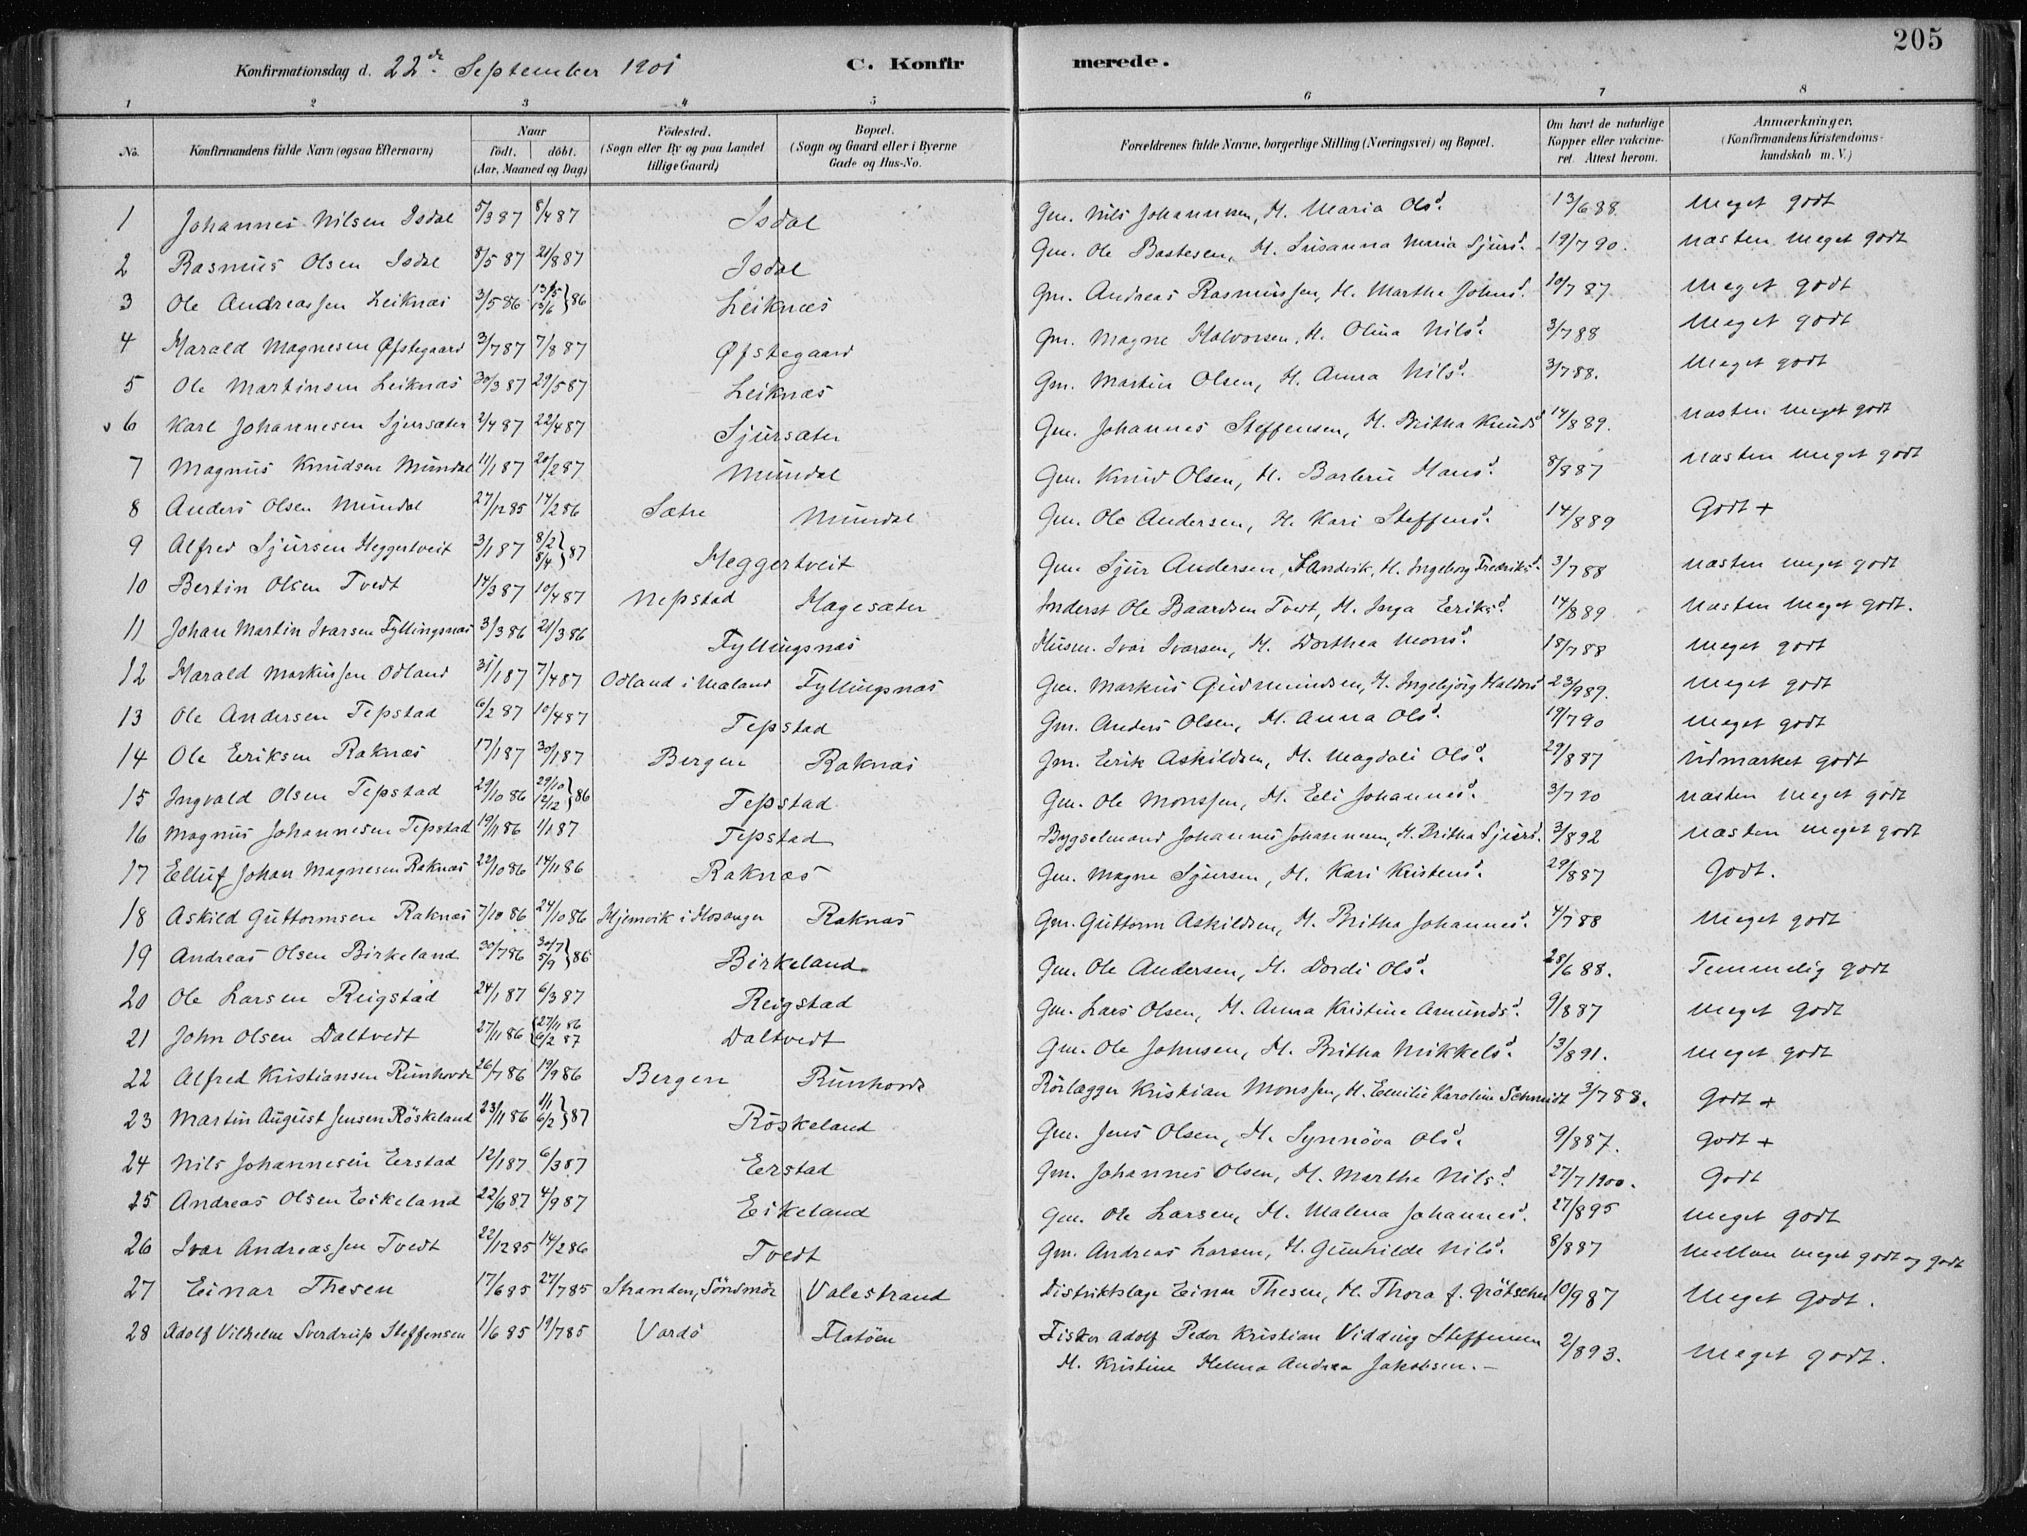 205
Konfirmationsdag d. 22de September 1901 C. Konfirmerede.
1 2 3 4 5 6 7 8
No. Konfirmandens fulde Navn (ogsaa Efternavn) Naar Födt. döbt. (Aar, Maaned og Dag) Födested. (Sogn eller By og paa Landet tillige Gaard) Bopæl. (Sogn og Gaard eller i Byerne Gade og Hus-No. Forældrenes fulde Navne, borgerlige Stilling (Næringsvei) og Bopæl. Om havt de naturlige Kopper eller vakcineret. Attest herom. Anmærkninger. (Konfirmandens Kristendomskundskab m. V.)
1 Johannes Nilsen Isdal 5/3 87 8/4 87 Isdal Gm. Nils Johannesen, H. Maria Olsd. 13/6 88 Meget godt
2 Rasmus Olsen Isdal 8/5 87 21/8 87 Isdal Gm. Ole Bastesen, H. Susanna Maria Sjursd. 19/7 90. næsten meget godt
3 Ole Andreassen Leiknæs 3/5 86 13/5 13/6 } 86 Leiknæs Gm. Andreas Rasmussen, H. Martha Johnsd. 10/7 87 Meget godt
4 Harald Magnesen Øfstegaard 3/7 87 7/8 87 Øfstegaard Gm. Magne Halvorsen, H. Olina Nilsd. 3/7 88 Meget godt
5 Ole Martinsen Leiknæs 30/3 87 29/5 87 Leiknæs Gm. Martin Olsen, H. Anna Nilsd. 3/7 88. Meget godt
6 Karl Johannesen Sjursæter 2/4 87 22/4 87 Sjursæter Gm. Johannes Steffensen, H. Britha Knudsd 14/8 89. næsten meget godt
7 Magnus Knudsen Mundal 11/1 87 20/2 87 Mundal Gm. Knud Olsen, H. Barbru Hansd. 8/8 87 næsten meget godt
8 Anders Olsen Mundal 27/12 85 14/2 86 Sætre Mundal Gm. Ole Andersen, H. Kari Steffensd. 14/8 89 Godt +
9 Alfred Sjursen Heggertveit 3/1 87 8/2 8/4 } 87 Heggertveit Gm. Sjur Andersen, Sandvik, H. Ingeborg Fredriksd. 3/7 88 næsten meget godt
10 Bertin Olsen Tvedt 14/3 87 10/4 87 Nepstad Hagesæter Inderst Ole Baardsen Tvedt, H. Inga Eriksd. 14/8 89. Næsten meget godt.
11 Johan Martin Ivarsen Fyllingsnæs 3/3 86 21/3 86 Fyllingsnæs Husm. Ivar Ivarsen, H. Dorthea Monsd. 18/7 88 Meget godt
12 Harald Markussen Odland 31/1 87 7/4 87 Odland i Mæland Fyllingsnæs Gm. Markus Gudmundsen, H. Ingebjörg Haldorsd 23/9 89. Meget godt
13 Ole Andersen Tepstad 6/2 87 10/4 87 Tepstad Gm. Anders Olsen, H. Anna Olsd. 19/7 90 Meget godt
14 Ole Eriksen Raknæs 17/1 87 30/1 87 Bergen Raknæs Gm. Erik Askildsen, H. Magdali Olsd. 29/8 87 Udmærket godt
15 Ingvald Olsen Tepstad 29/10 86 29/10 12/12 } 86 Tepstad Gm. Ole Monssen, H. Eli Johannesd. 3/7 90 næsten meget godt
16 Magnus Johannesen Tepstad 19/11 86 1/1 87 Tepstad Bygselmand Johannes Johannesen, H. Britha Sjursd. 3/8 92 Næsten meget godt
17 Elluf Johan Magnesen Raknæs 22/10 86 14/11 86 Raknæs Gm. Magne Sjursen, H. Kari Kristensd. 29/8 87 Godt.
18 Askild Guttormsen Raknæs 7/10 86 24/10 86 Hjemvik i Hosanger Raknæs Gm. Guttorm Askildsen, H. Britha Johannesd. 4/7 88 Meget godt
19 Andreas Olsen Birkeland 30/7 86 30/7 5/9 } 86 Birkeland Gm. Ole Andersen, H. Dordi Olsd. 28/6 88. Temmelig godt
20 Ole Larsen Reigstad 24/1 87 6/3 87 Reigstad Gm. Lars Olsen, H. Anna Kristine Amundsd. 9/8 87 Meget godt
21 John Olsen Daltvedt 27/11 86 { 27/11 86 6/2 87 Daltvedt Gm. Ole Johnsen, H. Britha Mikkelsd. 13/8 91. Meget godt
22 Alfred Kristiansen Runhovde 26/7 86 19/9 86 Bergen Runhovde Rörlægger Kristian Monssen, H. Emilie Karoline Schmidt 3/7 88. Godt +
23 Martin August Jensen Röskeland 23/11 86 1/1 6/2 } 87 Röskeland Gm. Jens Olsen, H. Synnöva Olsd. 9/8 87. Godt +
24 Nils Johannesen Eerstad 12/1 87 6/3 87 Eerstad Gm. Johannes Olsen, H. Martha Nilsd. 27/7 1900. Godt
25 Andreas Olsen Eikeland 22/6 87 4/9 87 Eikeland Gm. Ole Larsen, H. Malena Johannesd. 27/8 95 Meget godt
26 Ivar Andreassen Tvedt 22/12 85 14/2 86 Tvedt Gm. Andreas Larsen, H. Gunhilde Nilsd. 8/8 87 Mellem meget godt og godt
27 Einar Thesen 17/6 85 27/7 85 Stranden, Söndmör Valestrand Distriktslæge Einar Thesen, H. Thora f. 10/9 87 Meget godt.
28 Adolf Vilhelm Sverdrup Steffensen 1/6 85 19/7 85 Vardö Flatöen Fisker Adolf Peder Kristian Vidding Steffensen 2/8 93. Meget godt.
H. Kristine Helma Andrea Jakobsen. -